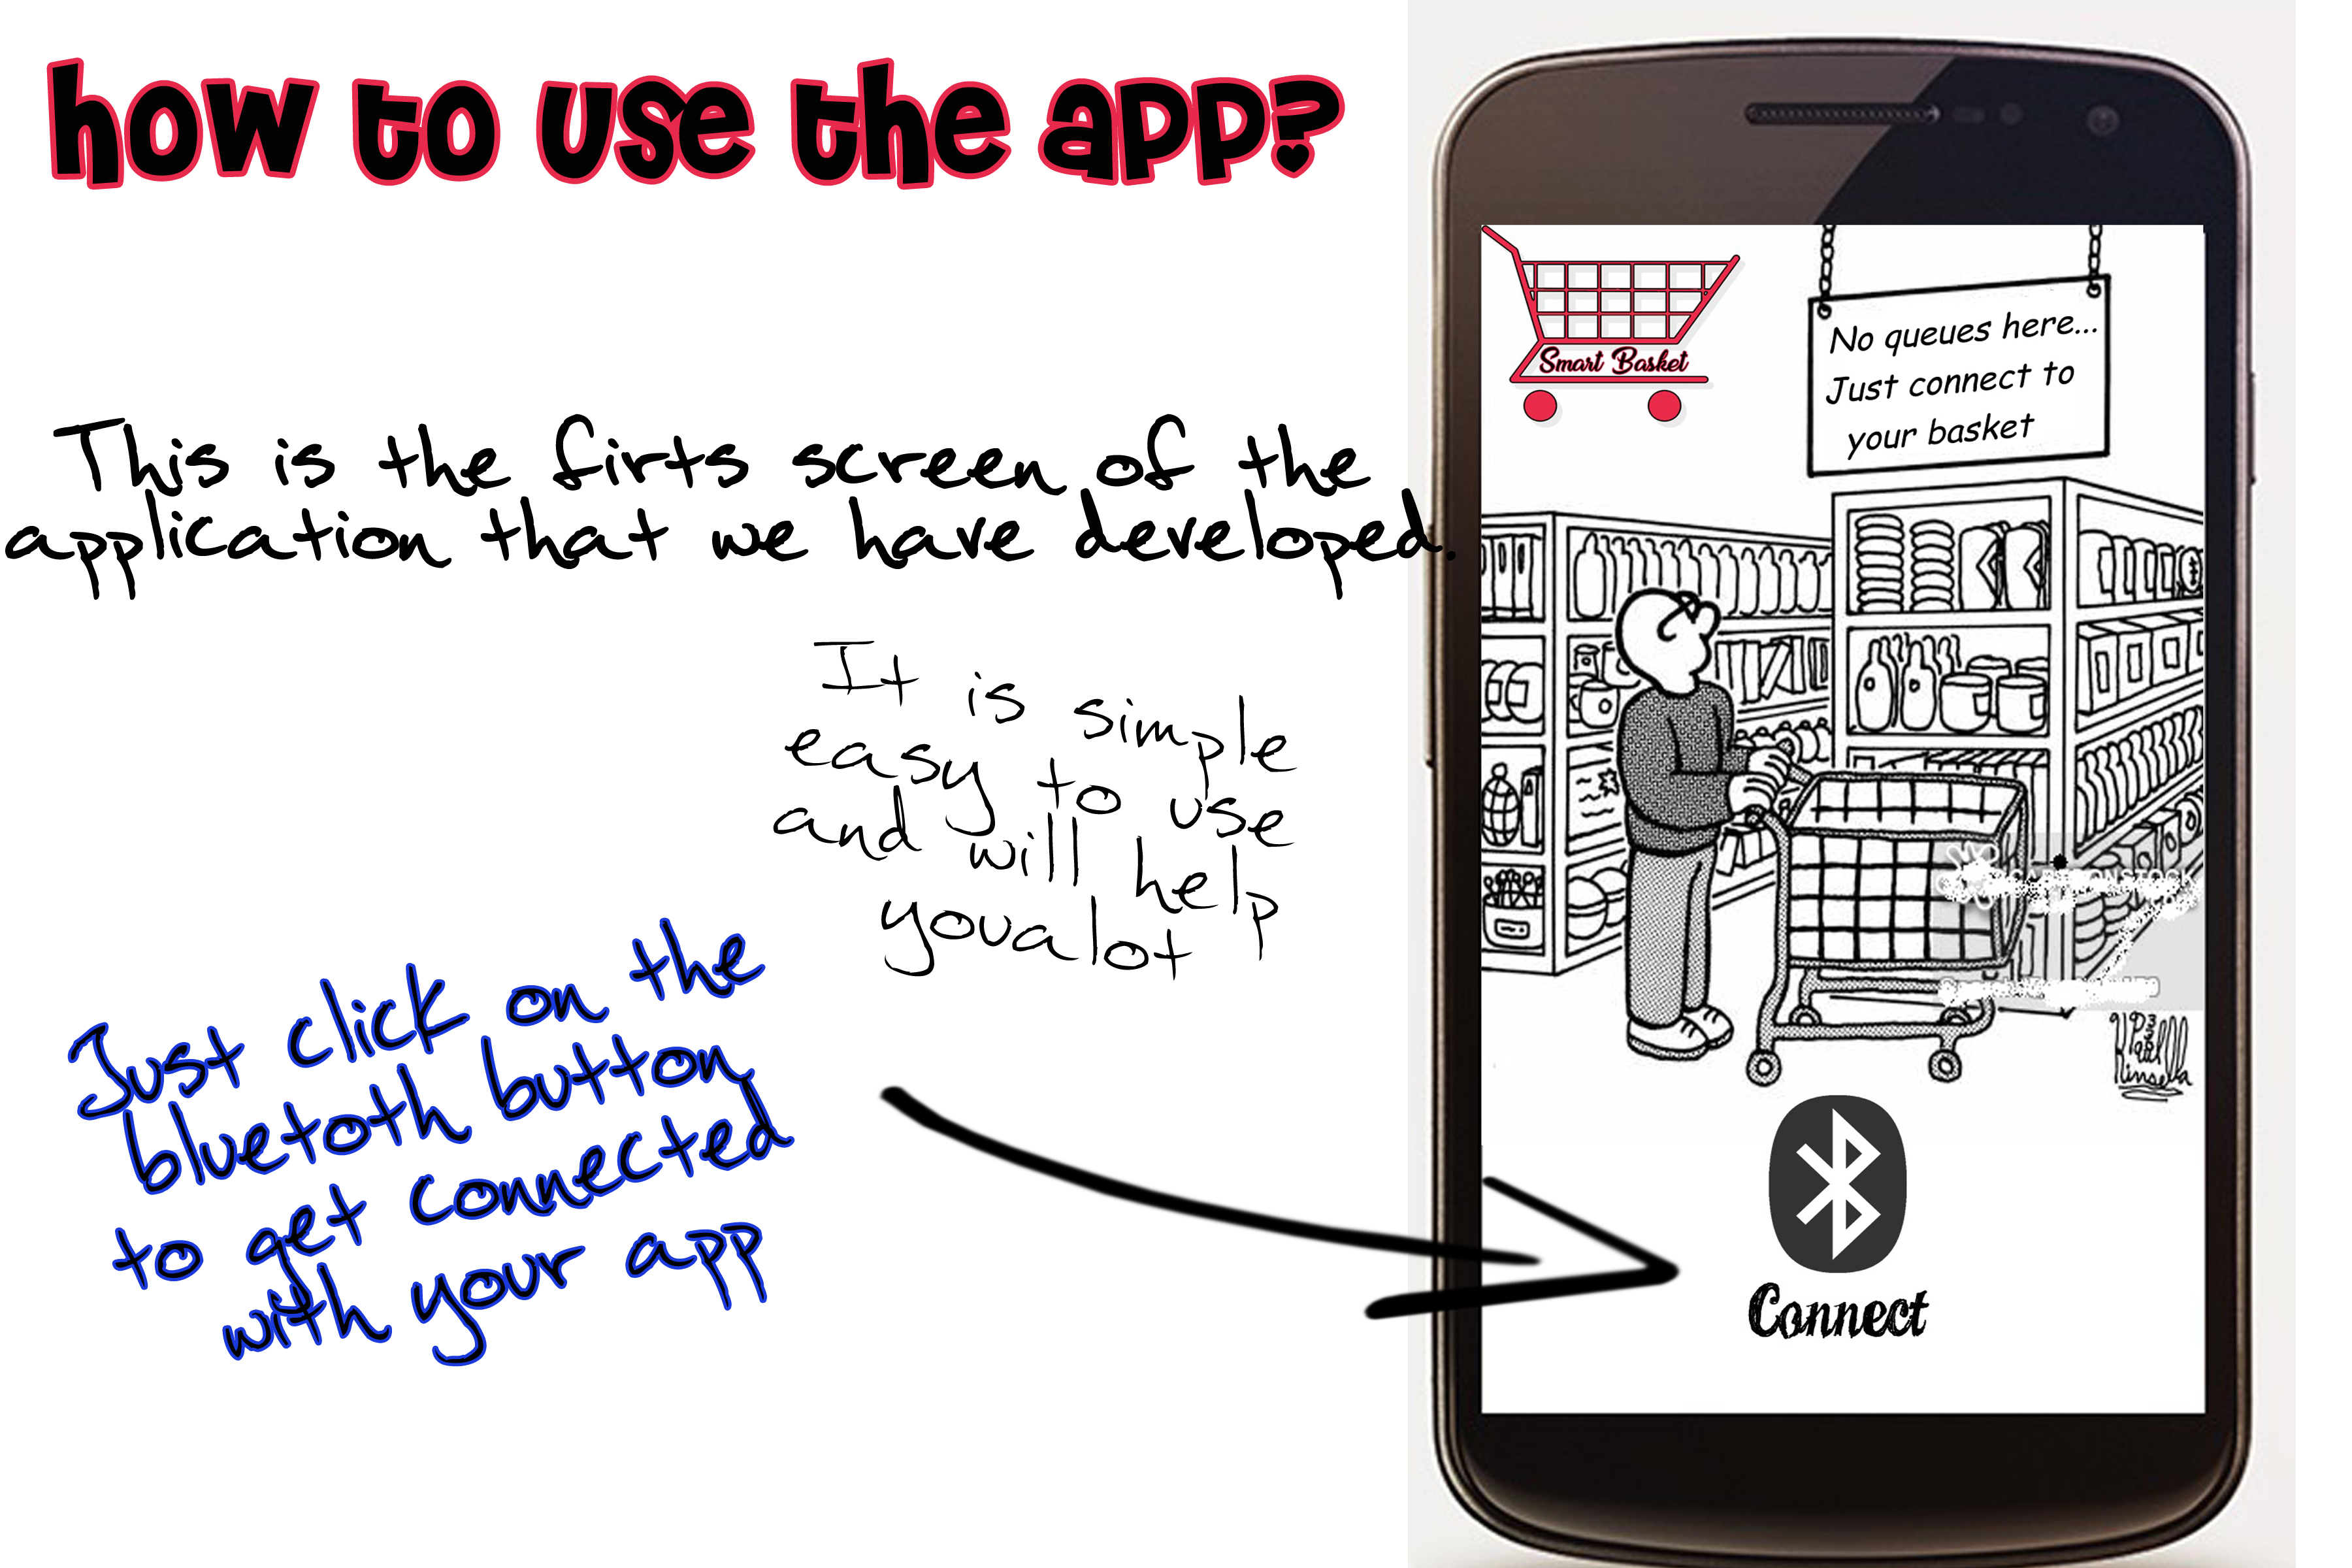 how to use the app?
This is the firts screen of the
application that we have developed.
It is simple
easy to use
and will help
youalot
Just click on the
bluetoth button
to get connected
with your app
Smart Basket
No queues here...
Just connect to
your basket
Kinsella
Connect